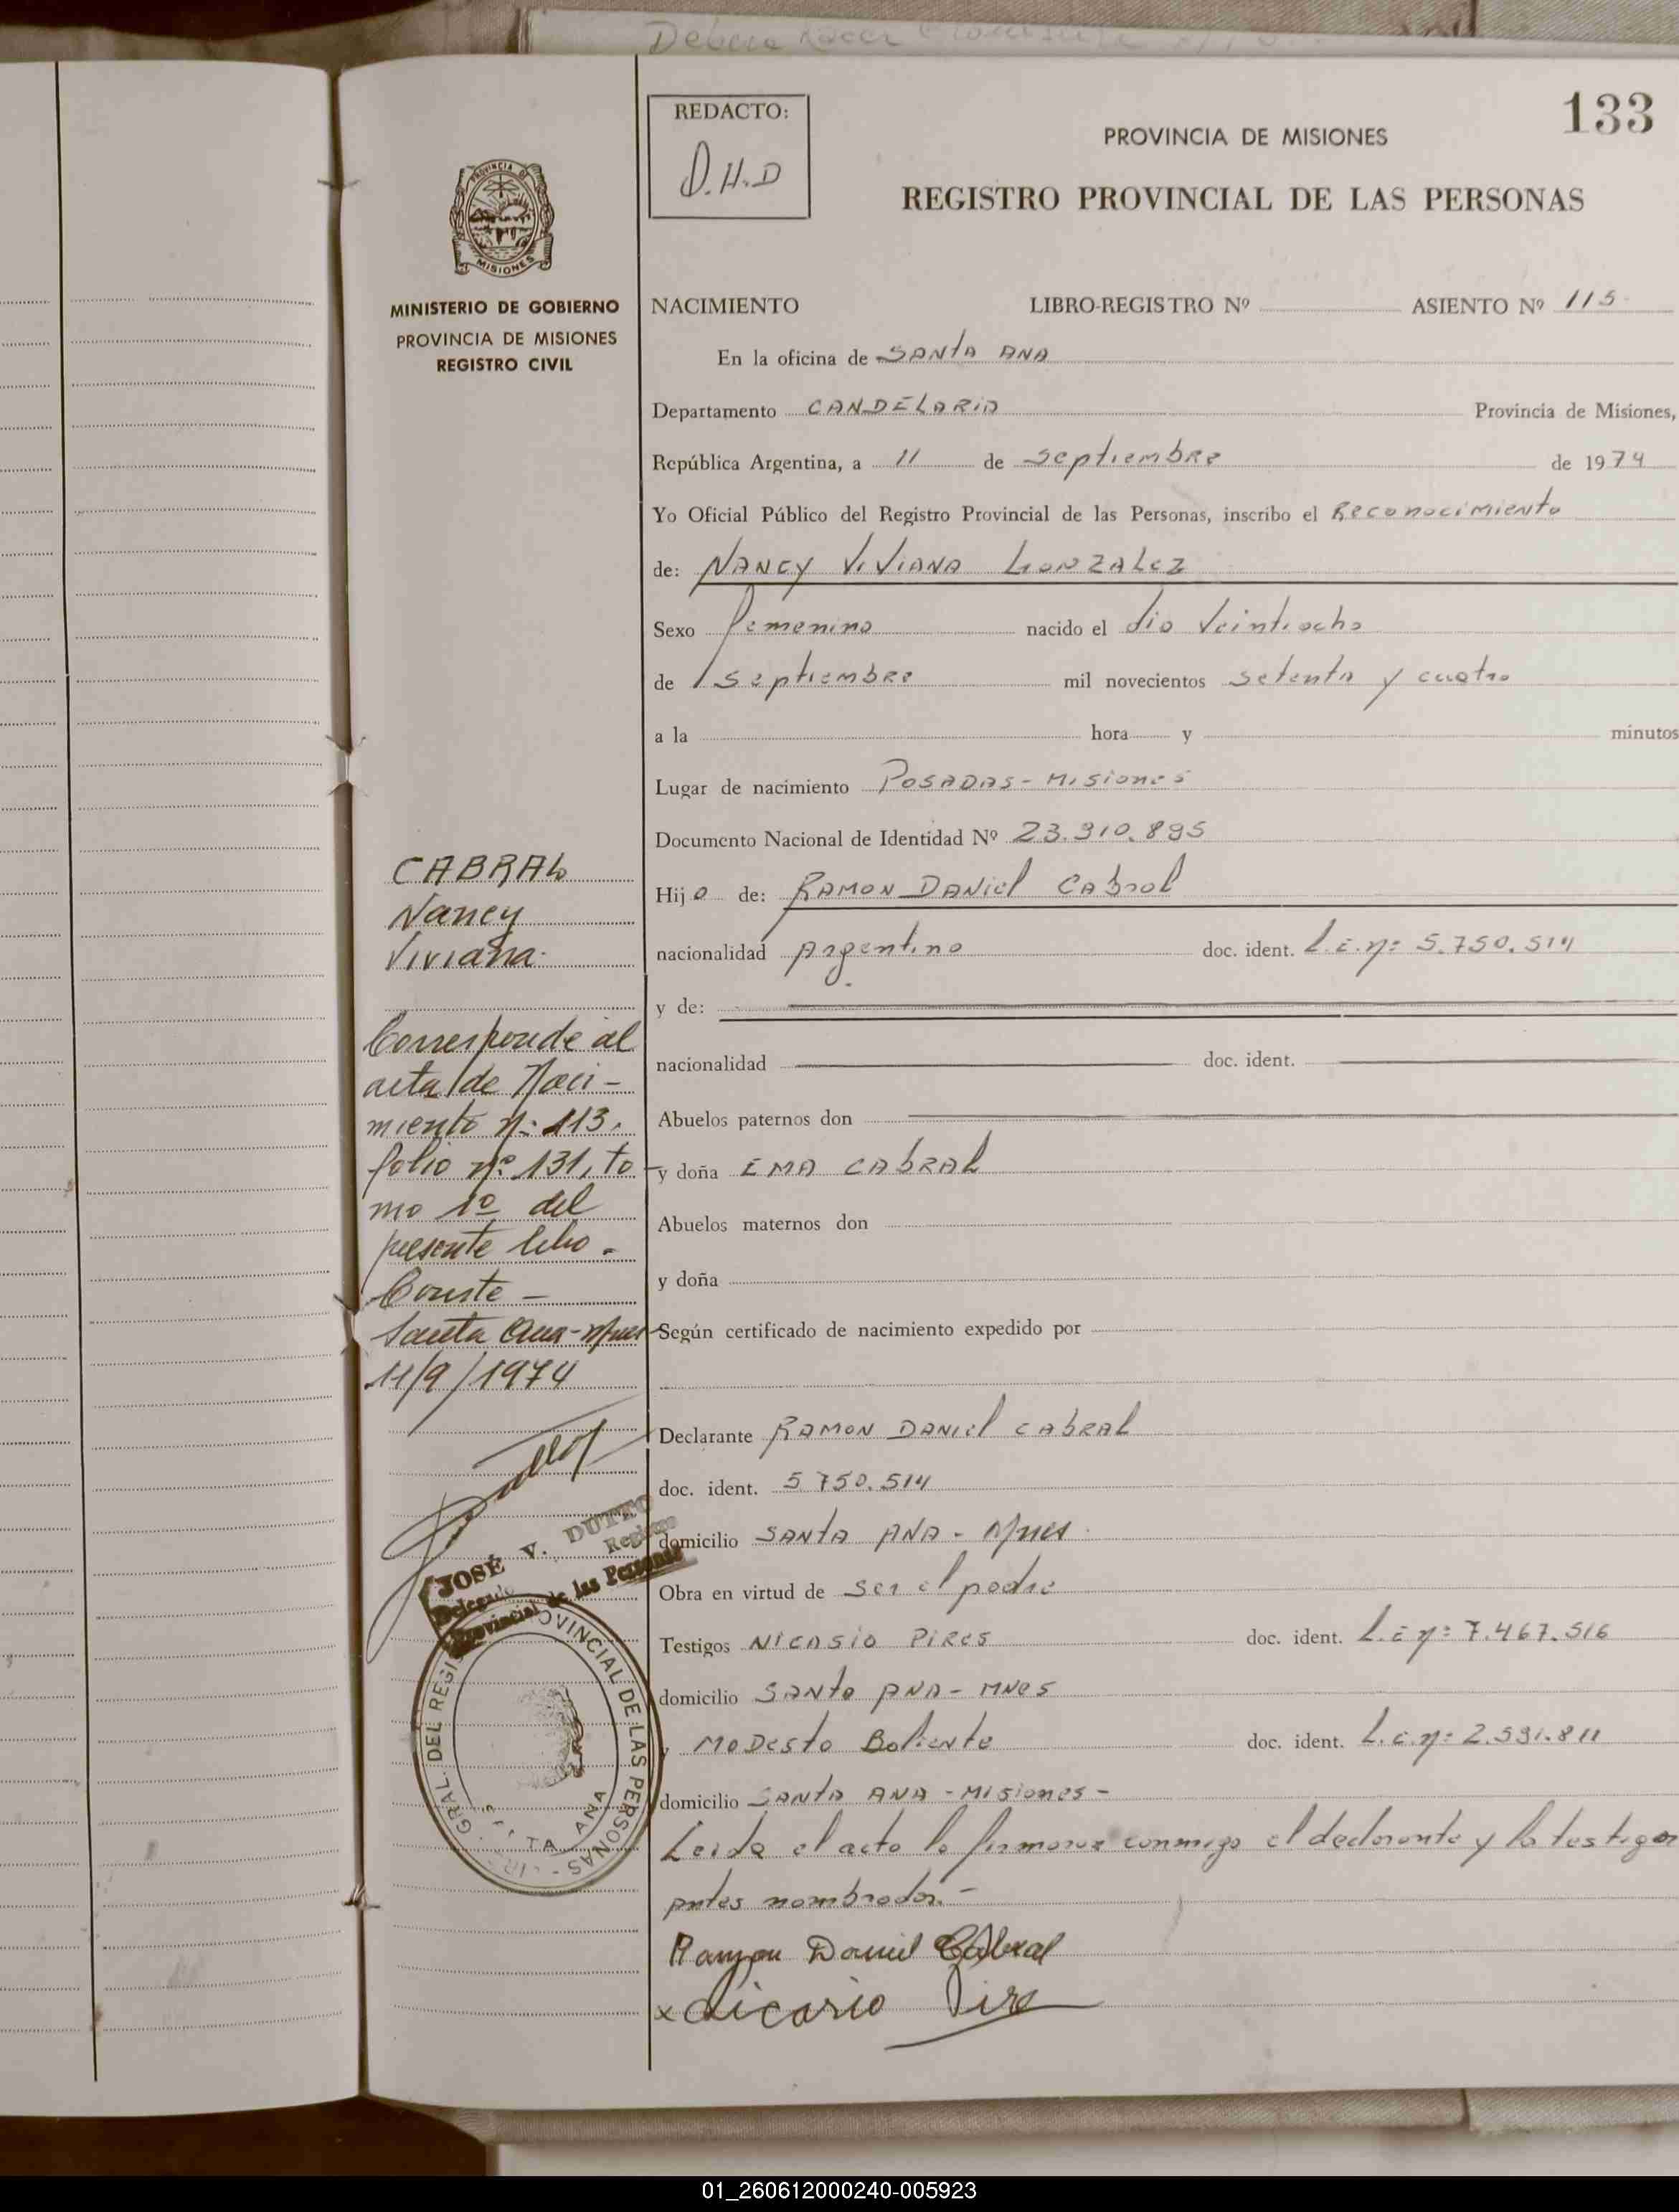 133
REDACTO:
O.H.D
PROVINCIA DE MISIONES
REGISTRO PROVINCIAL DE LAS PERSONAS
PROVINCIA DE
MISIONES
MINISTERIO DE GOBIERNO
PROVINCIA DE MISIONES
REGISTRO CIVIL
NACIMIENTO LIBRO-REGISTRO Nº ASIENTO Nº 115
En la oficina de SANTA ANA
Departamento CANDELARIA Provincia de Misiones,
República Argentina, a 11 de septiembre de 1974
Yo Oficial Público del Registro Provincial de las Personas, inscribo el Reconocimiento
de: NANCY VIVIANA GONZALEZ
Sexo femenino nacido el dia veintiocho
de septiembre mil novecientos setenta y cuatro
a la hora y minutos
Lugar de nacimiento POSADAS - MISIONES
Documento Nacional de Identidad Nº 23.910.895
Hija de: RAMON DANIEL CABRAL
nacionalidad Argentino doc. ident. L.E. nº 5.750.514
y de:
nacionalidad doc. ident.
Abuelos paternos don
y doña EMA CABRAL
Abuelos maternos don
y doña
Según certificado de nacimiento expedido por
Declarante RAMON DANIEL CABRAL
doc. ident. 5.750.514
domicilio SANTA ANA - Mnes
Obra en virtud de ser el padre
Testigos NICASIO PIRES doc. ident. L.E nº 7.467.516
domicilio SANTA ANA - MNES
y MODESTO Boliente doc. ident. L.E. nº 2.591.811
domicilio SANTA ANA - MISIONES -
Leida el acta la firman conmigo el declarante y los testigos
antes nombrados. -
Ramon Daniel Cabral
x Nicasio Pire
CABRAL
Nancy
Viviana.
Corresponde al
acta de Naci-
miento nº 113,
folio nº 131, to-
mo 1º del
presente libro.
Conste -
Santa Ana - Mnes
11/9/1974
JOSÉ V. DUTTO
Delegado Registro
Provincial de las Personas
GRAL. DEL REGISTRO PROVINCIAL DE LAS PERSONAS
SANTA ANA
01_260612000240-005923